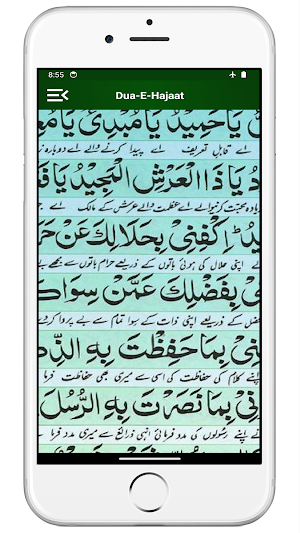 8:55
Dua-E-Hajaat
يَا حَمِيْدُ يَا مُبْدِئُ يَا مُ
اے قابل تعریف اے پیدا کرنے والے اے دوبارہ
دُ يَا ذَا الْعَرْشِ الْمَجِيْدُ يَا فَ
اے عظمت والے عرش کے مالک اے
اِكْفِنِيْ بِحَلَالِكَ عَنْ حَرَ
اپنی حلال کی ہوئی باتوں کے ذریعے حرام باتوں سے مجھے
بِفَضْلِكَ عَمَّنْ سِوَاكَ
کے ذریعے اپنی ذات کے سوا تمام سے بے پروا کر
نِيْ بِمَا حَفِظْتَ بِهِ الذِّكْ
اپنے کلام کی حفاظت کی اسی سے میری بھی حفاظت فرما
نِيْ بِمَا نَصَرْتَ بِهِ الرُّسُلَ
نے اپنے رسولوں کی مدد فرمائی انہی ذرائع سے میری مدد فرما